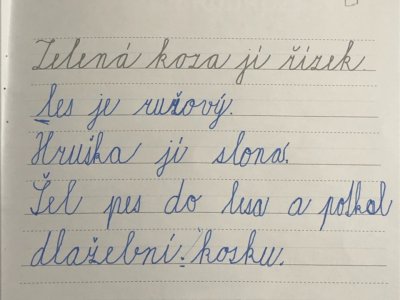 Zelená koza jí řízek
les je ružový.
Hruška jí slona.
Šel pes do lesa a potkal
dlažební kosku.